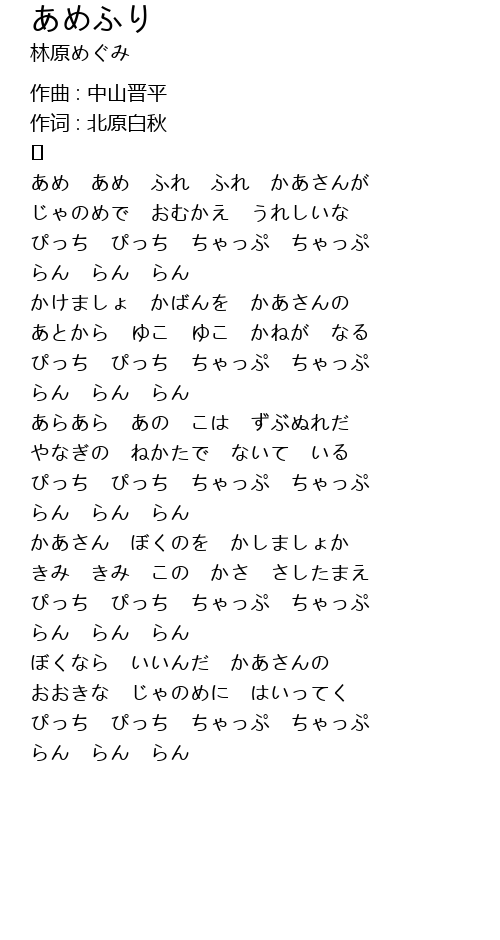 あめふり
林原めぐみ
作曲 : 中山晋平
作词 : 北原白秋
[]
あめ　あめ　ふれ　ふれ　かあさんが
じゃのめで　おむかえ　うれしいな
ぴっち　ぴっち　ちゃっぷ　ちゃっぷ
らん　らん　らん
かけましょ　かばんを　かあさんの
あとから　ゆこ　ゆこ　かねが　なる
ぴっち　ぴっち　ちゃっぷ　ちゃっぷ
らん　らん　らん
あらあら　あの　こは　ずぶぬれだ
やなぎの　ねかたで　ないて　いる
ぴっち　ぴっち　ちゃっぷ　ちゃっぷ
らん　らん　らん
かあさん　ぼくのを　かしましょか
きみ　きみ　この　かさ　さしたまえ
ぴっち　ぴっち　ちゃっぷ　ちゃっぷ
らん　らん　らん
ぼくなら　いいんだ　かあさんの
おおきな　じゃのめに　はいってく
ぴっち　ぴっち　ちゃっぷ　ちゃっぷ
らん　らん　らん